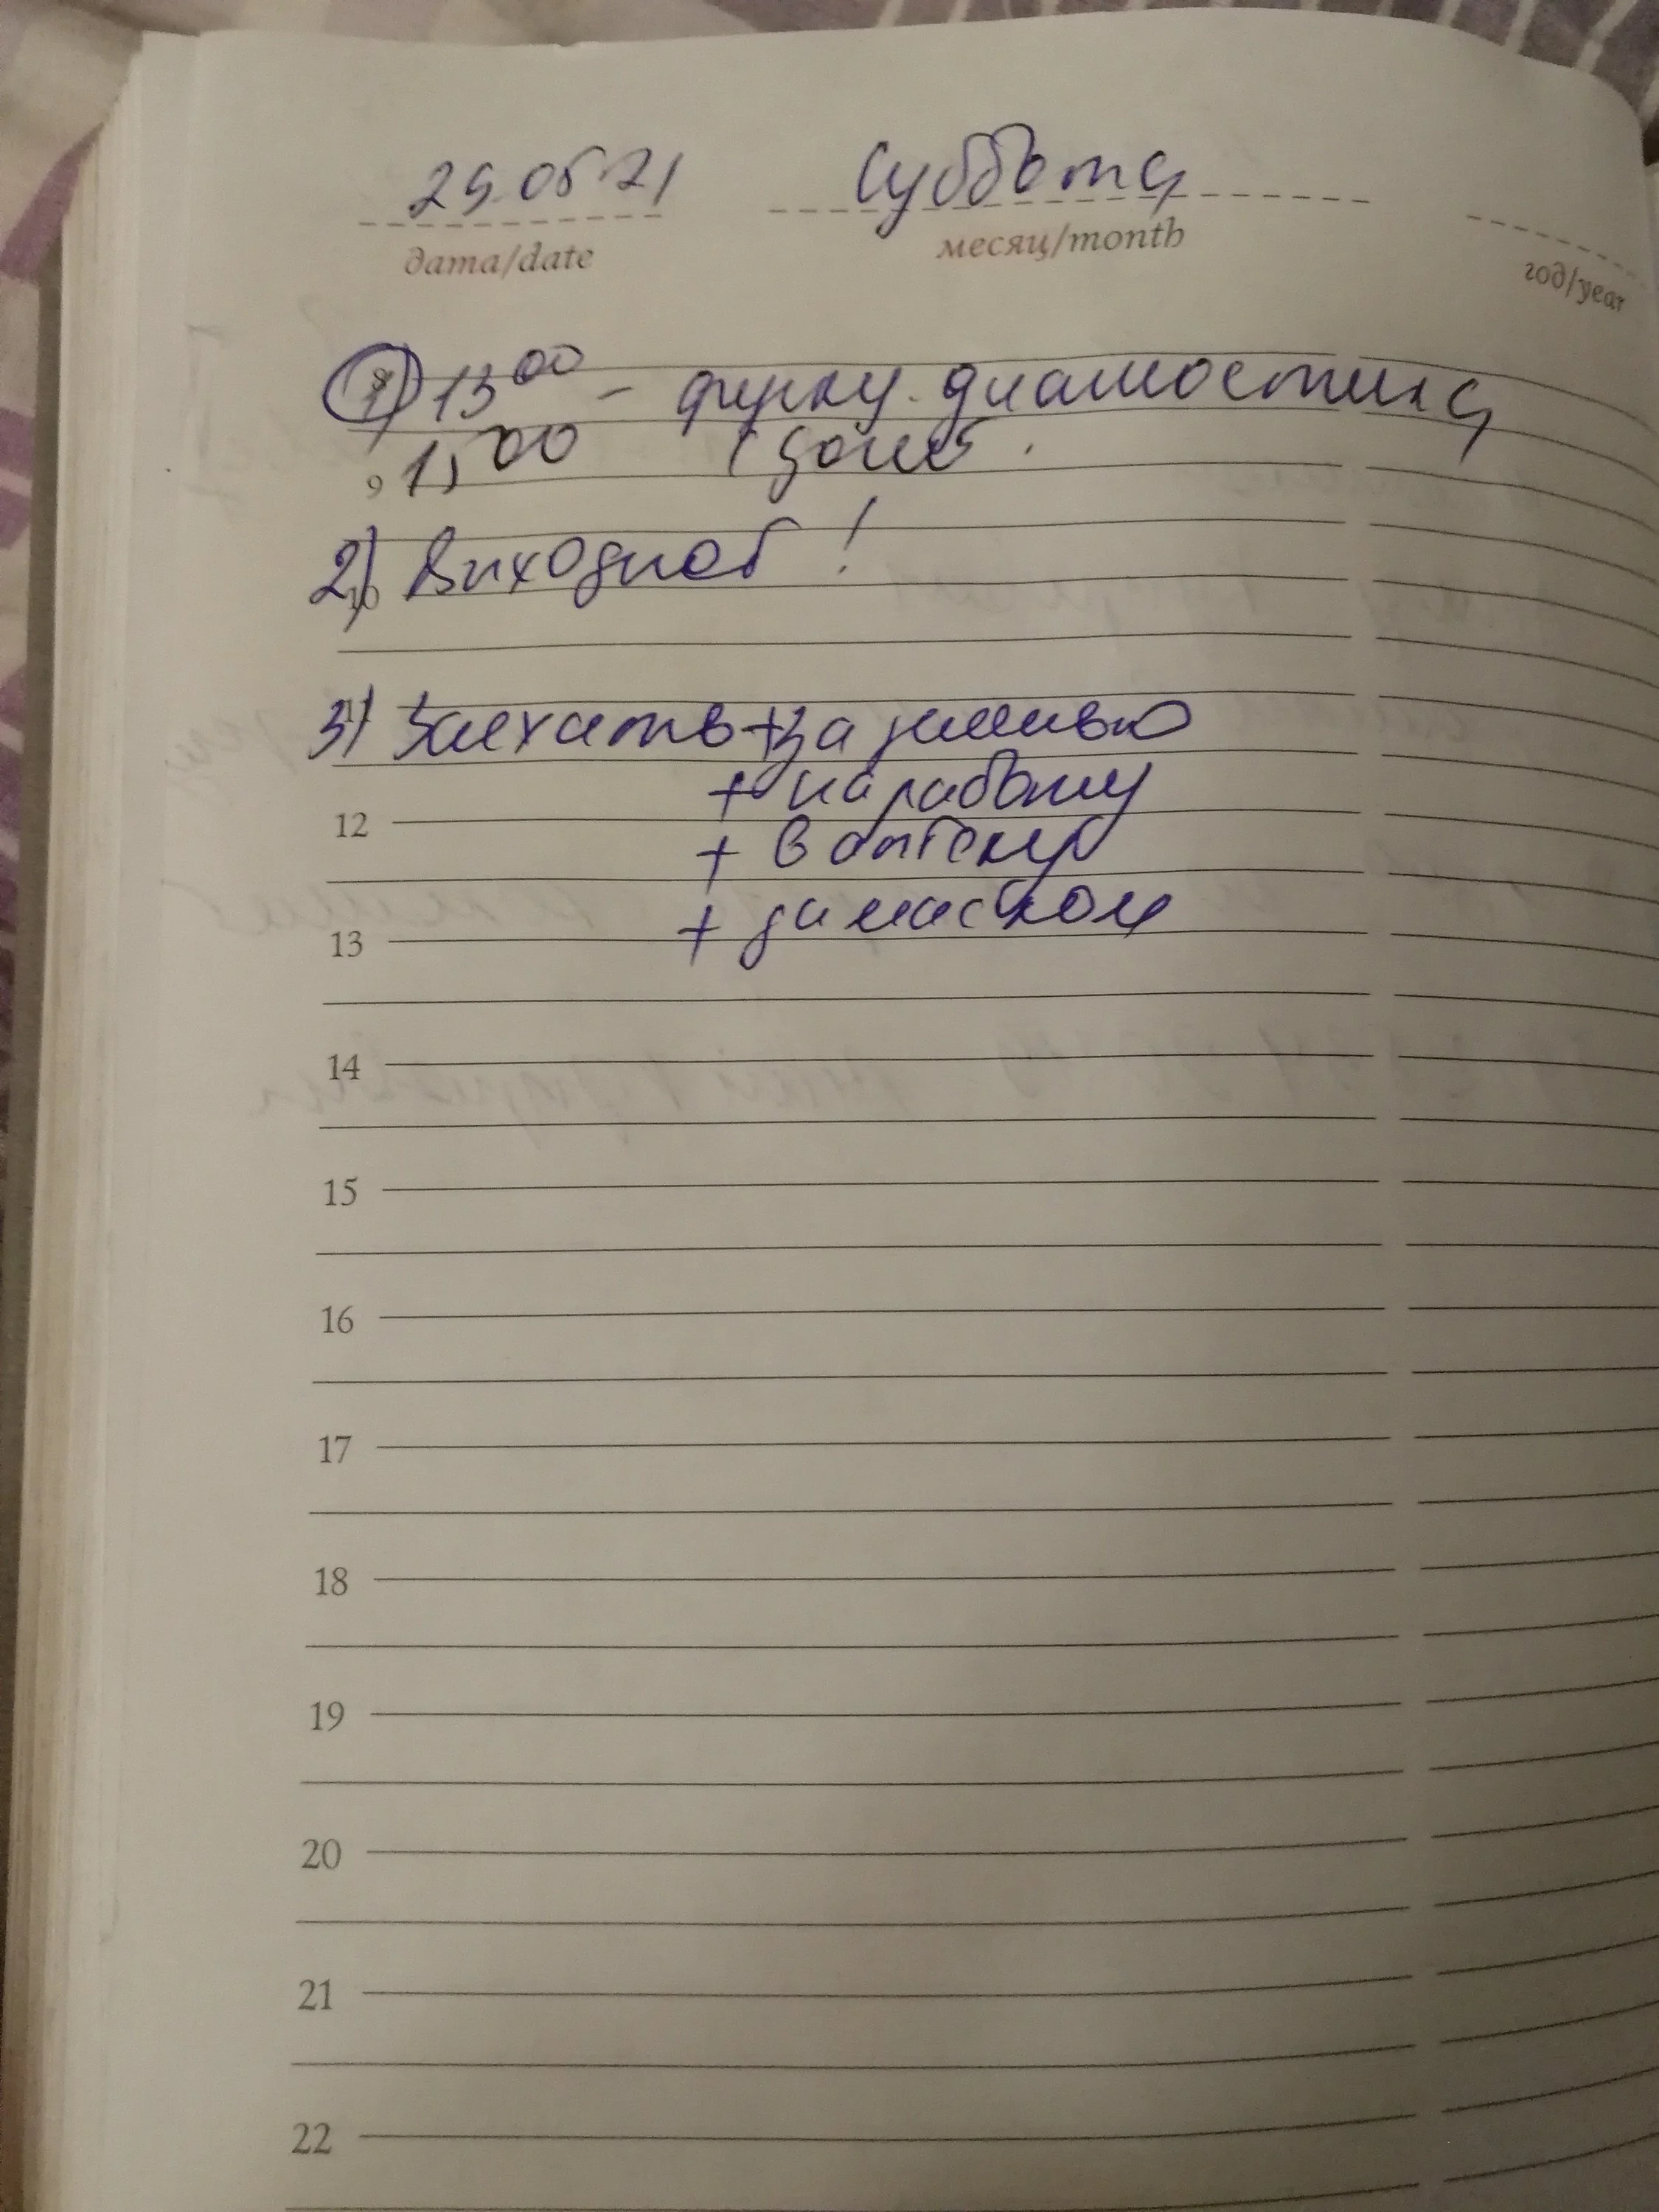 29.05.21 Суббота
дата/date месяц/month год/year
1) 13 00 - функц. диагностика
9 15 00
2) Выходной!
10
3) Заехать + за землёю
+ на работу
12
+ в аптеку
+ за маслом
13
14
15
16
17
18
19
20
21
22